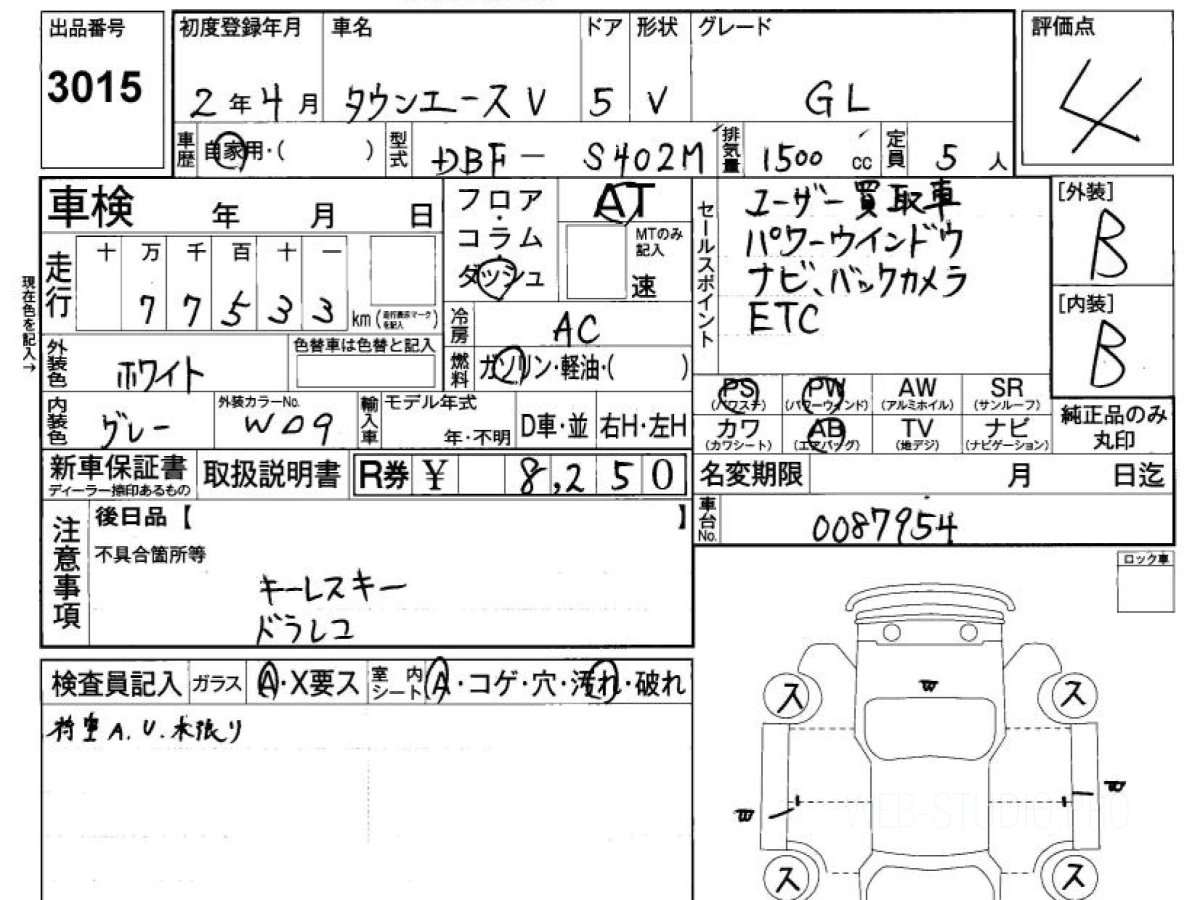 出品番号
3015
初度登録年月
2年4月
車名
タウンエースV
ドア
5
形状
V
グレード
GL
評価点
4
車歴
自家用・( )
型式
DBF-S402M
排気量
1500 cc
定員
5人
車検 年 月 日
現在色を記入→
走行
十 万 千 百 十 一
7 7 5 3 3 km
(走行表示マークを記入)
フロア・コラム・ダッシュ
AT
MTのみ記入
速
冷房
AC
燃料
ガソリン・軽油・( )
セールスポイント
ユーザー買取車
パワーウインドウ
ナビ、バックカメラ
ETC
[外装]
B
[内装]
B
純正品のみ丸印
外装色
ホワイト
色替車は色替と記入
内装色
グレー
外装カラーNo.
W09
輸入車
モデル年式
年・不明
D車・並
右H・左H
PS
(パワステ)
PW
(パワーウィンド)
AW
(アルミホイル)
SR
(サンルーフ)
カワ
(カワシート)
AB
(エアバッグ)
TV
(地デジ)
ナビ
(ナビゲーション)
新車保証書
ディーラー捺印あるもの
取扱説明書
R券 ¥ 8,250
名変期限 月 日迄
車台No.
0087954
注意事項
後日品【 】
不具合箇所等
キーレスキー
ドラレコ
ロック車
検査員記入
ガラス
A・X要ス
室内シート
A・コゲ・穴・汚れ・破れ
荷室A.U.木張り
W
ス
ス
W
W
ス
ス
WEB-STUDIO.PRO